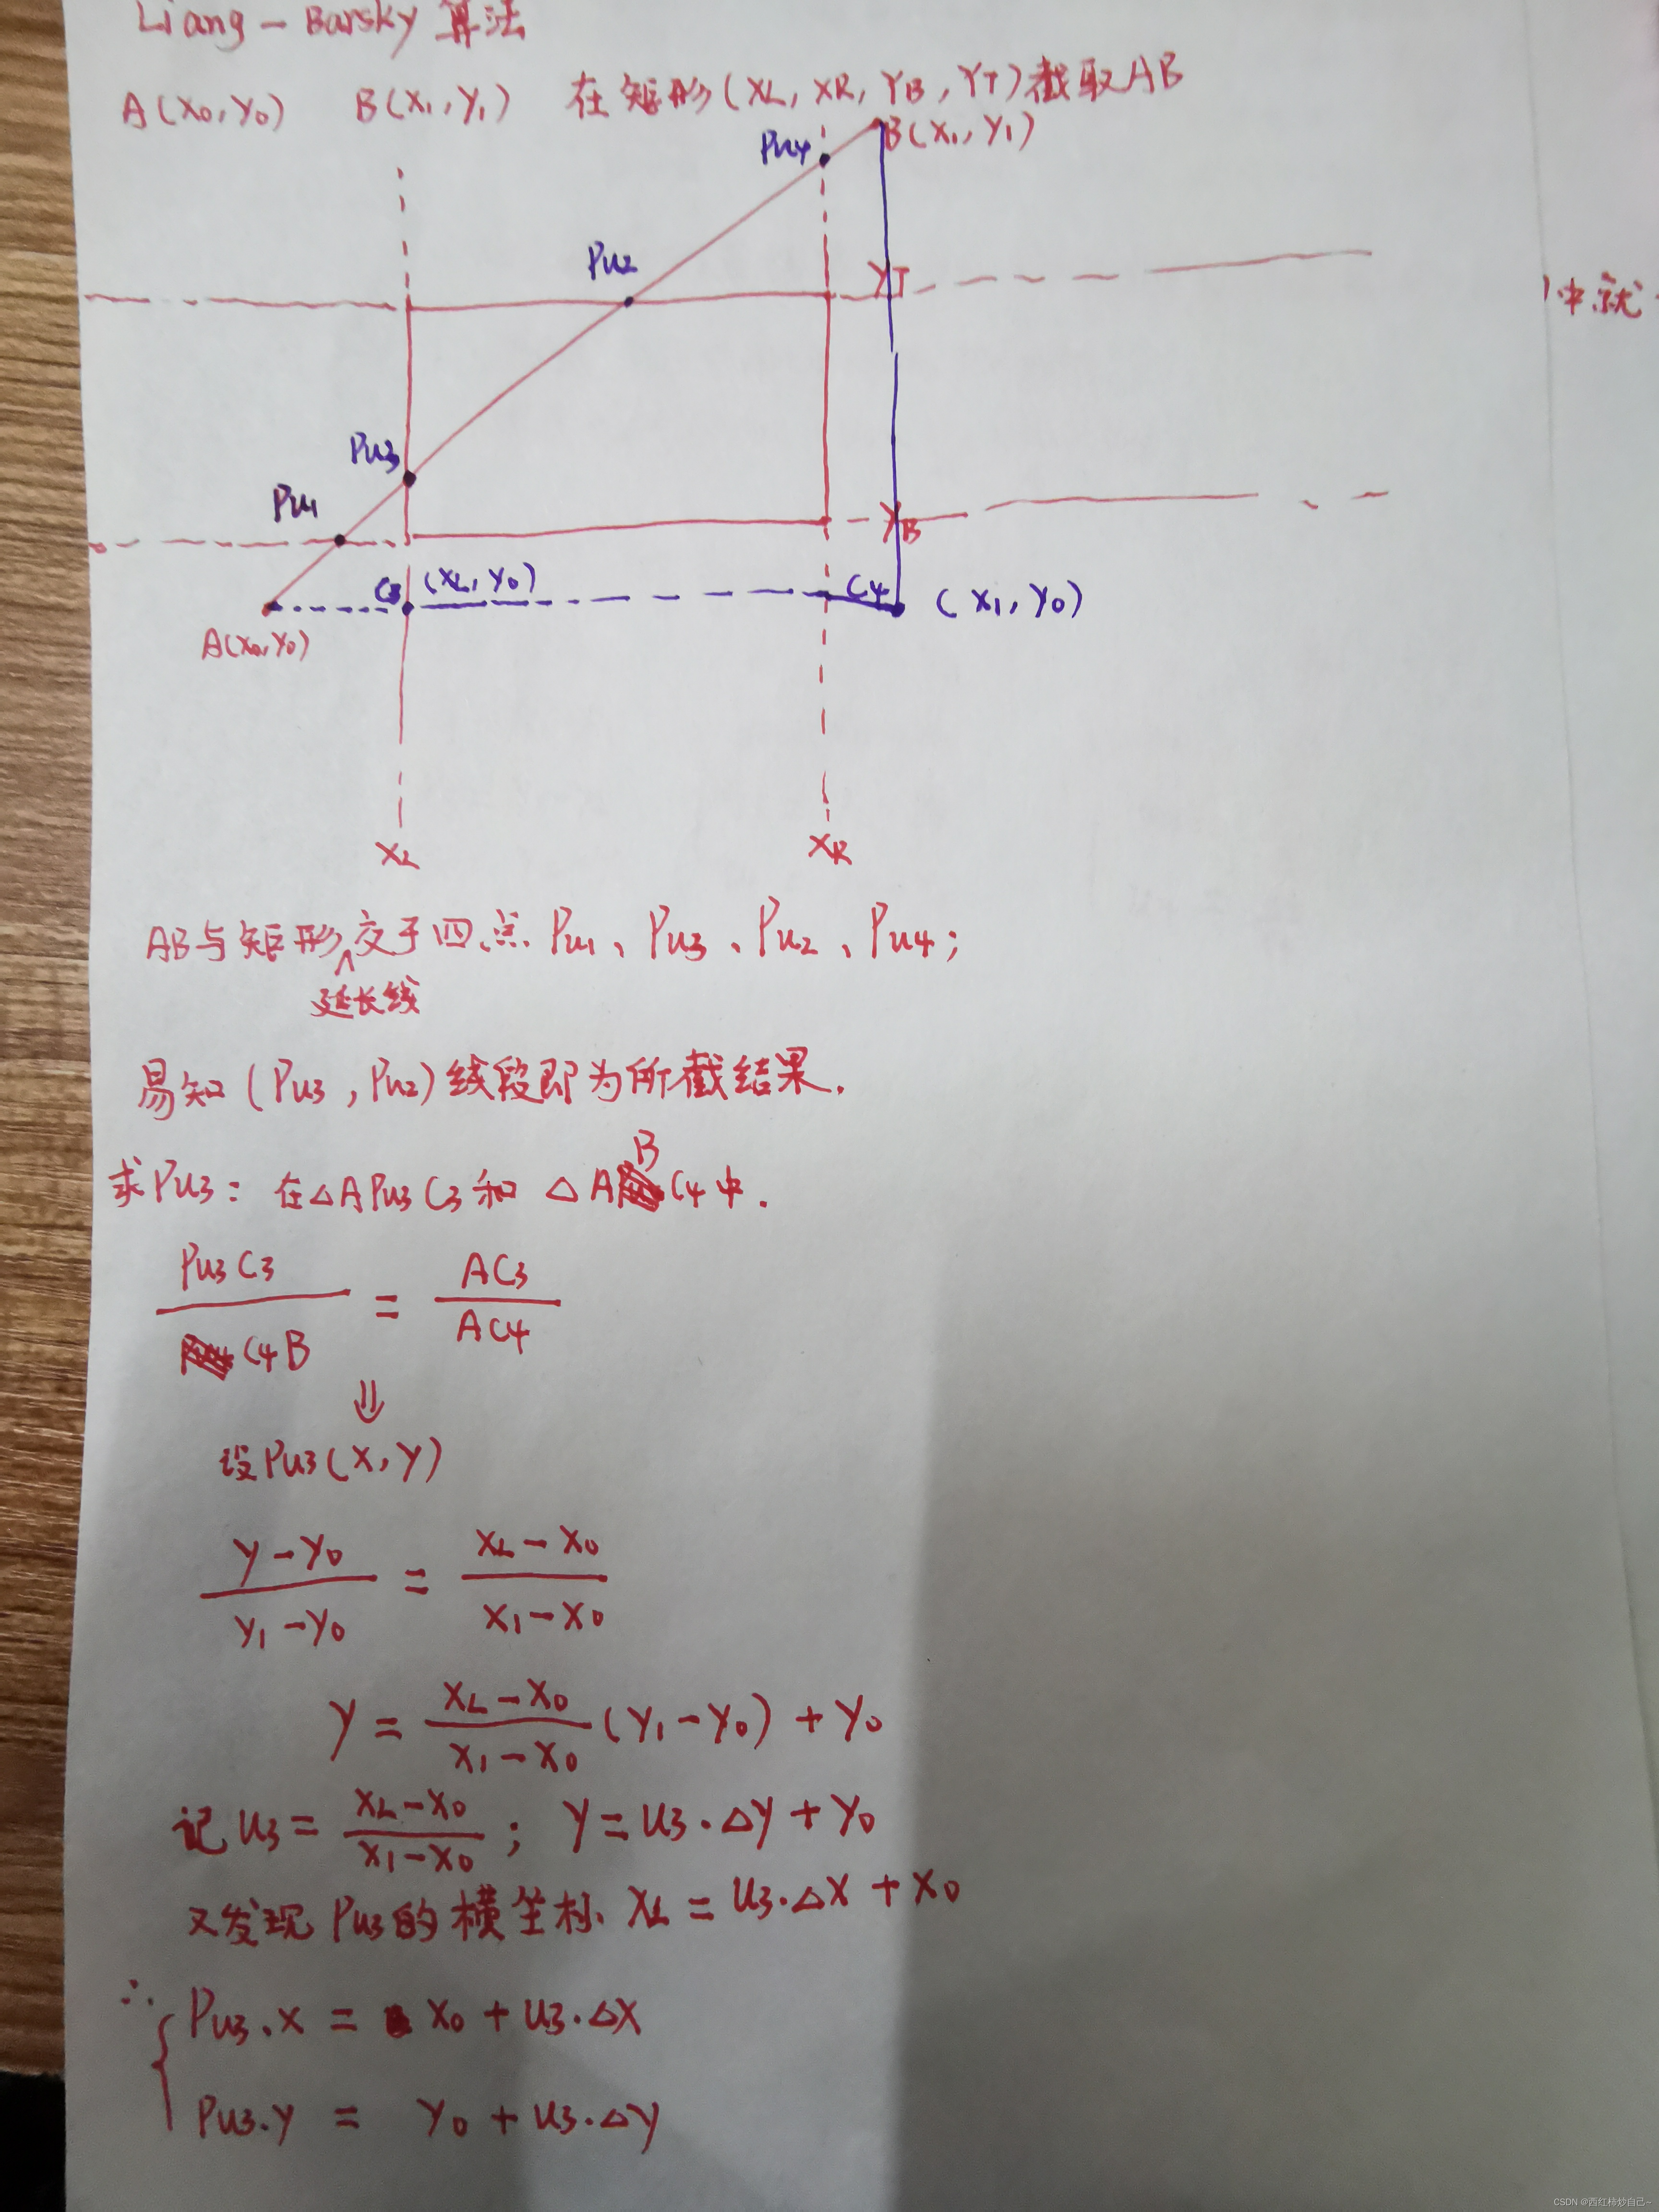 Liang-Barsky 算法
A(X0,Y0) B(X1,Y1) 在矩形(XL,XR,YB,YT)截取AB
Pu4
B(X1,Y1)
Pu2
YT
中就
Pu3
Pu1
YB
C3 (XL,Y0)
C4 (X1,Y0)
A(X0,Y0)
XL
XR
AB与矩形交于四点 Pu1、Pu3、Pu2、Pu4;
延长线
易知(Pu3,Pu2)线段即为所截结果.
B
求Pu3: 在△APu3C3和 △A C4中.
Pu3C3 = AC3
C4B AC4
⇓
设Pu3(X,Y)
Y-Y0 = XL-X0
Y1-Y0 X1-X0
Y = (XL-X0)/(X1-X0) (Y1-Y0) + Y0
记 U3 = (XL-X0)/(X1-X0); Y = U3·△Y + Y0
又发现 Pu3的横坐标 XL = U3·△X + X0
∴ { Pu3.X = X0 + U3·△X
Pu3.Y = Y0 + U3·△Y
CSDN @西红柿炒自己~